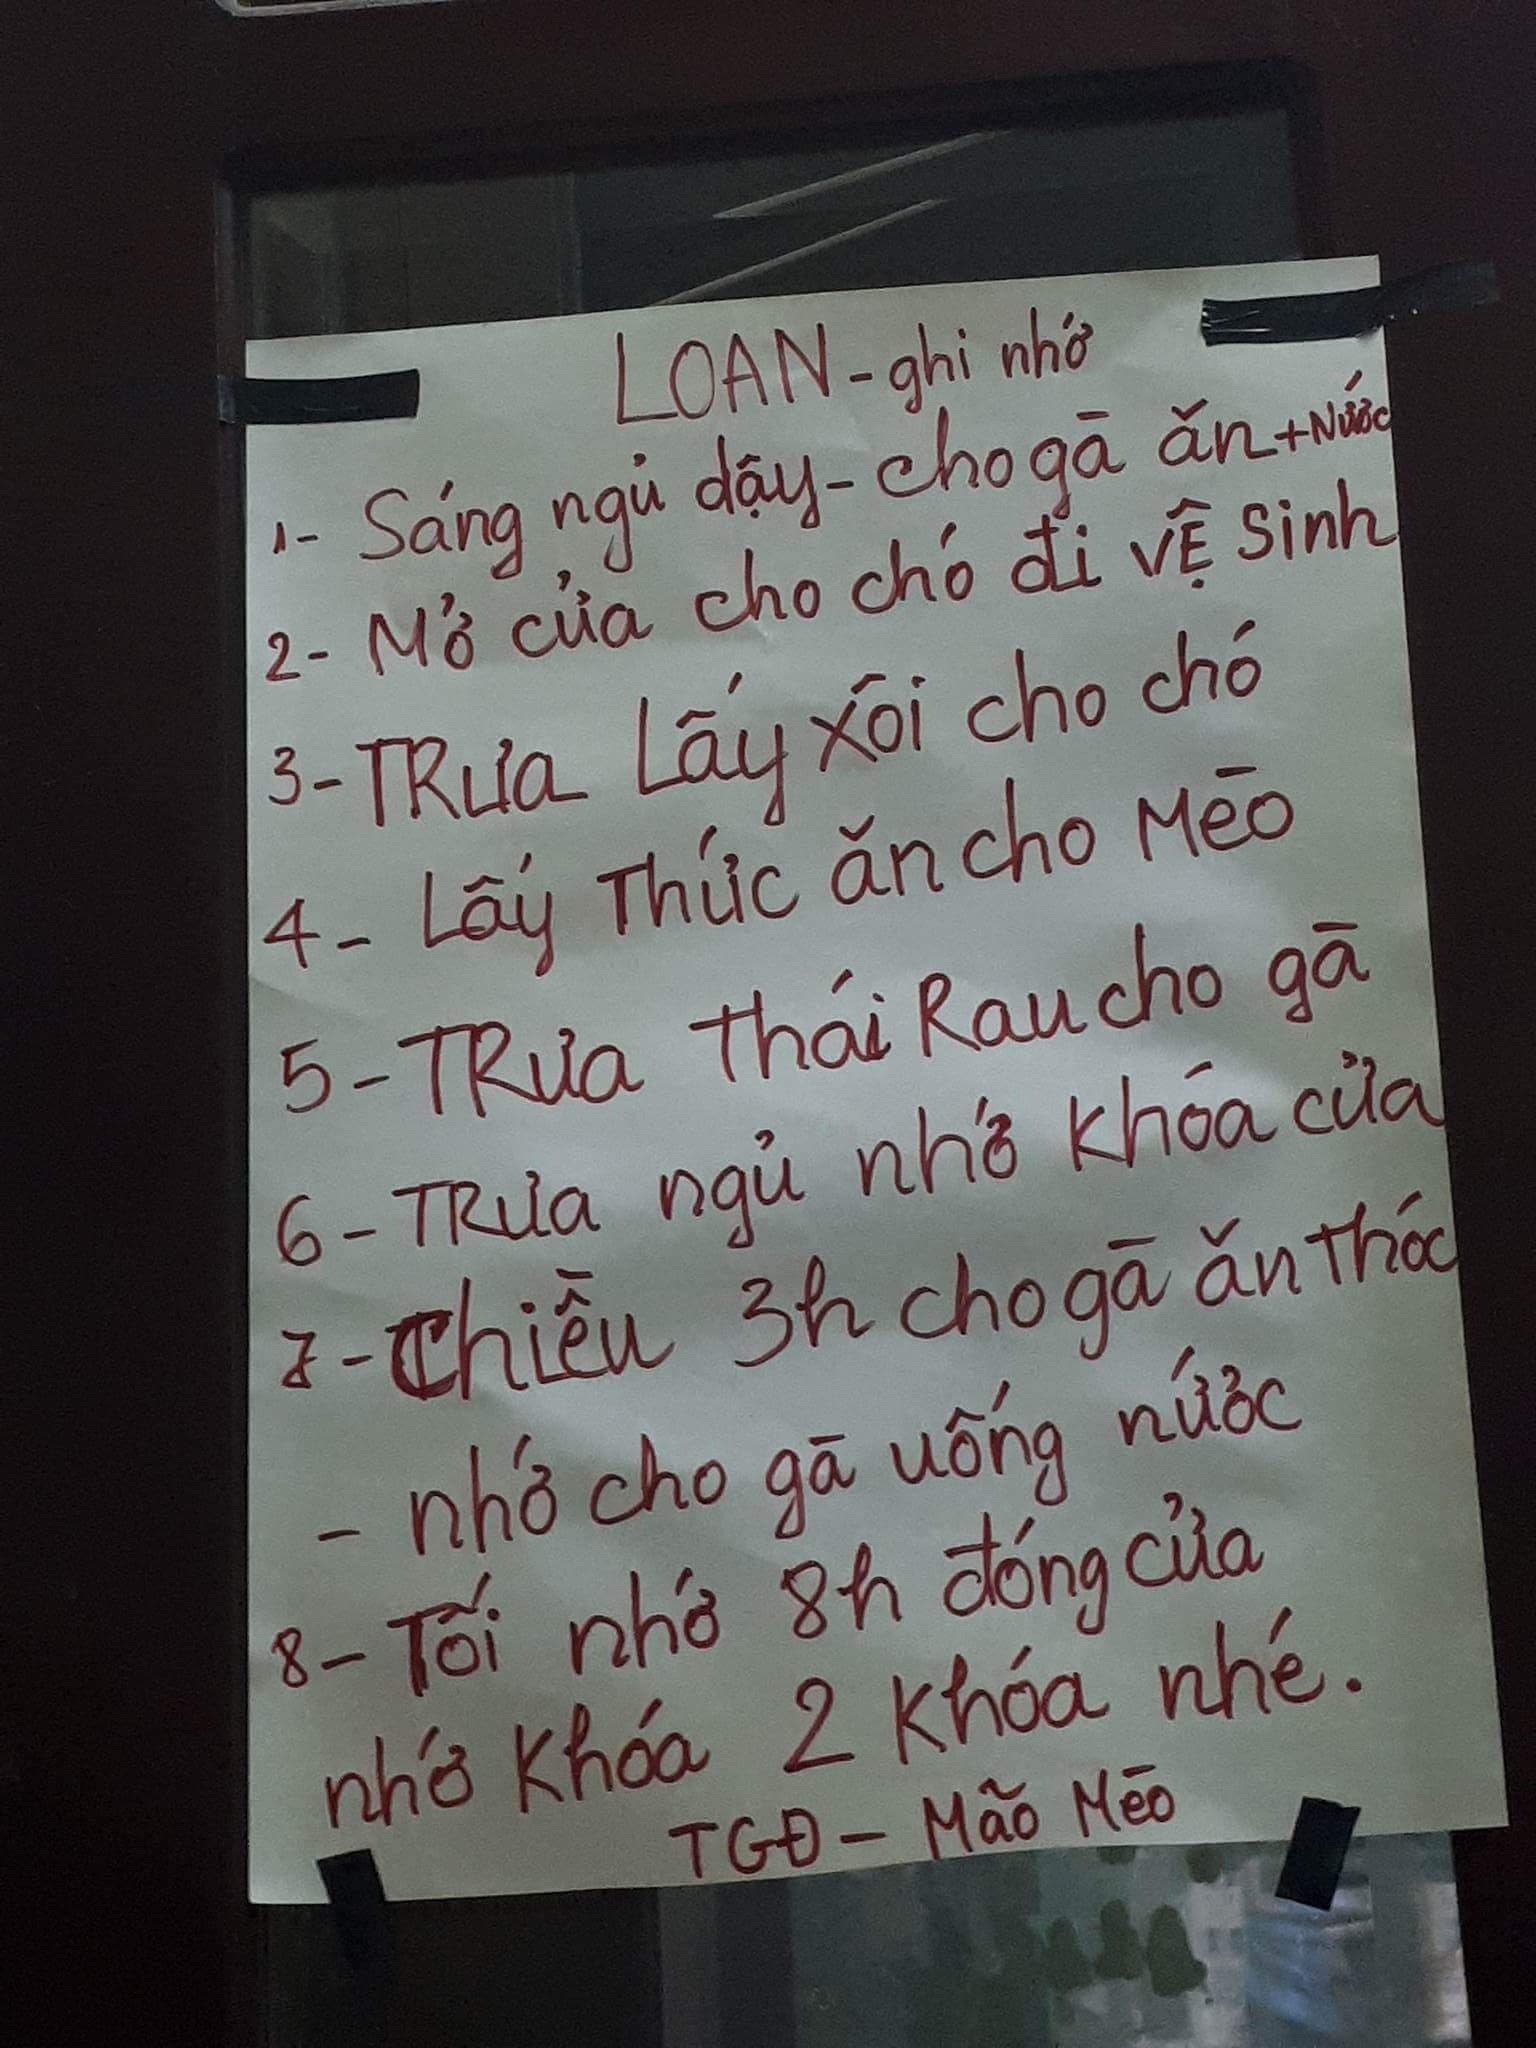 LOAN - ghi nhớ
1- Sáng ngủ dậy - cho gà ăn + Nước
2- Mở cửa cho chó đi vệ sinh
3- Trưa Lấy xôi cho chó
4- Lấy Thức ăn cho Mèo
5- Trưa Thái Rau cho gà
6- Trưa ngủ nhớ khóa cửa
7- Chiều 3h cho gà ăn thóc
- nhớ cho gà uống nước
8- Tối nhớ 8h đóng cửa
nhớ Khóa 2 Khóa nhé.
TGĐ - Mão Mèo